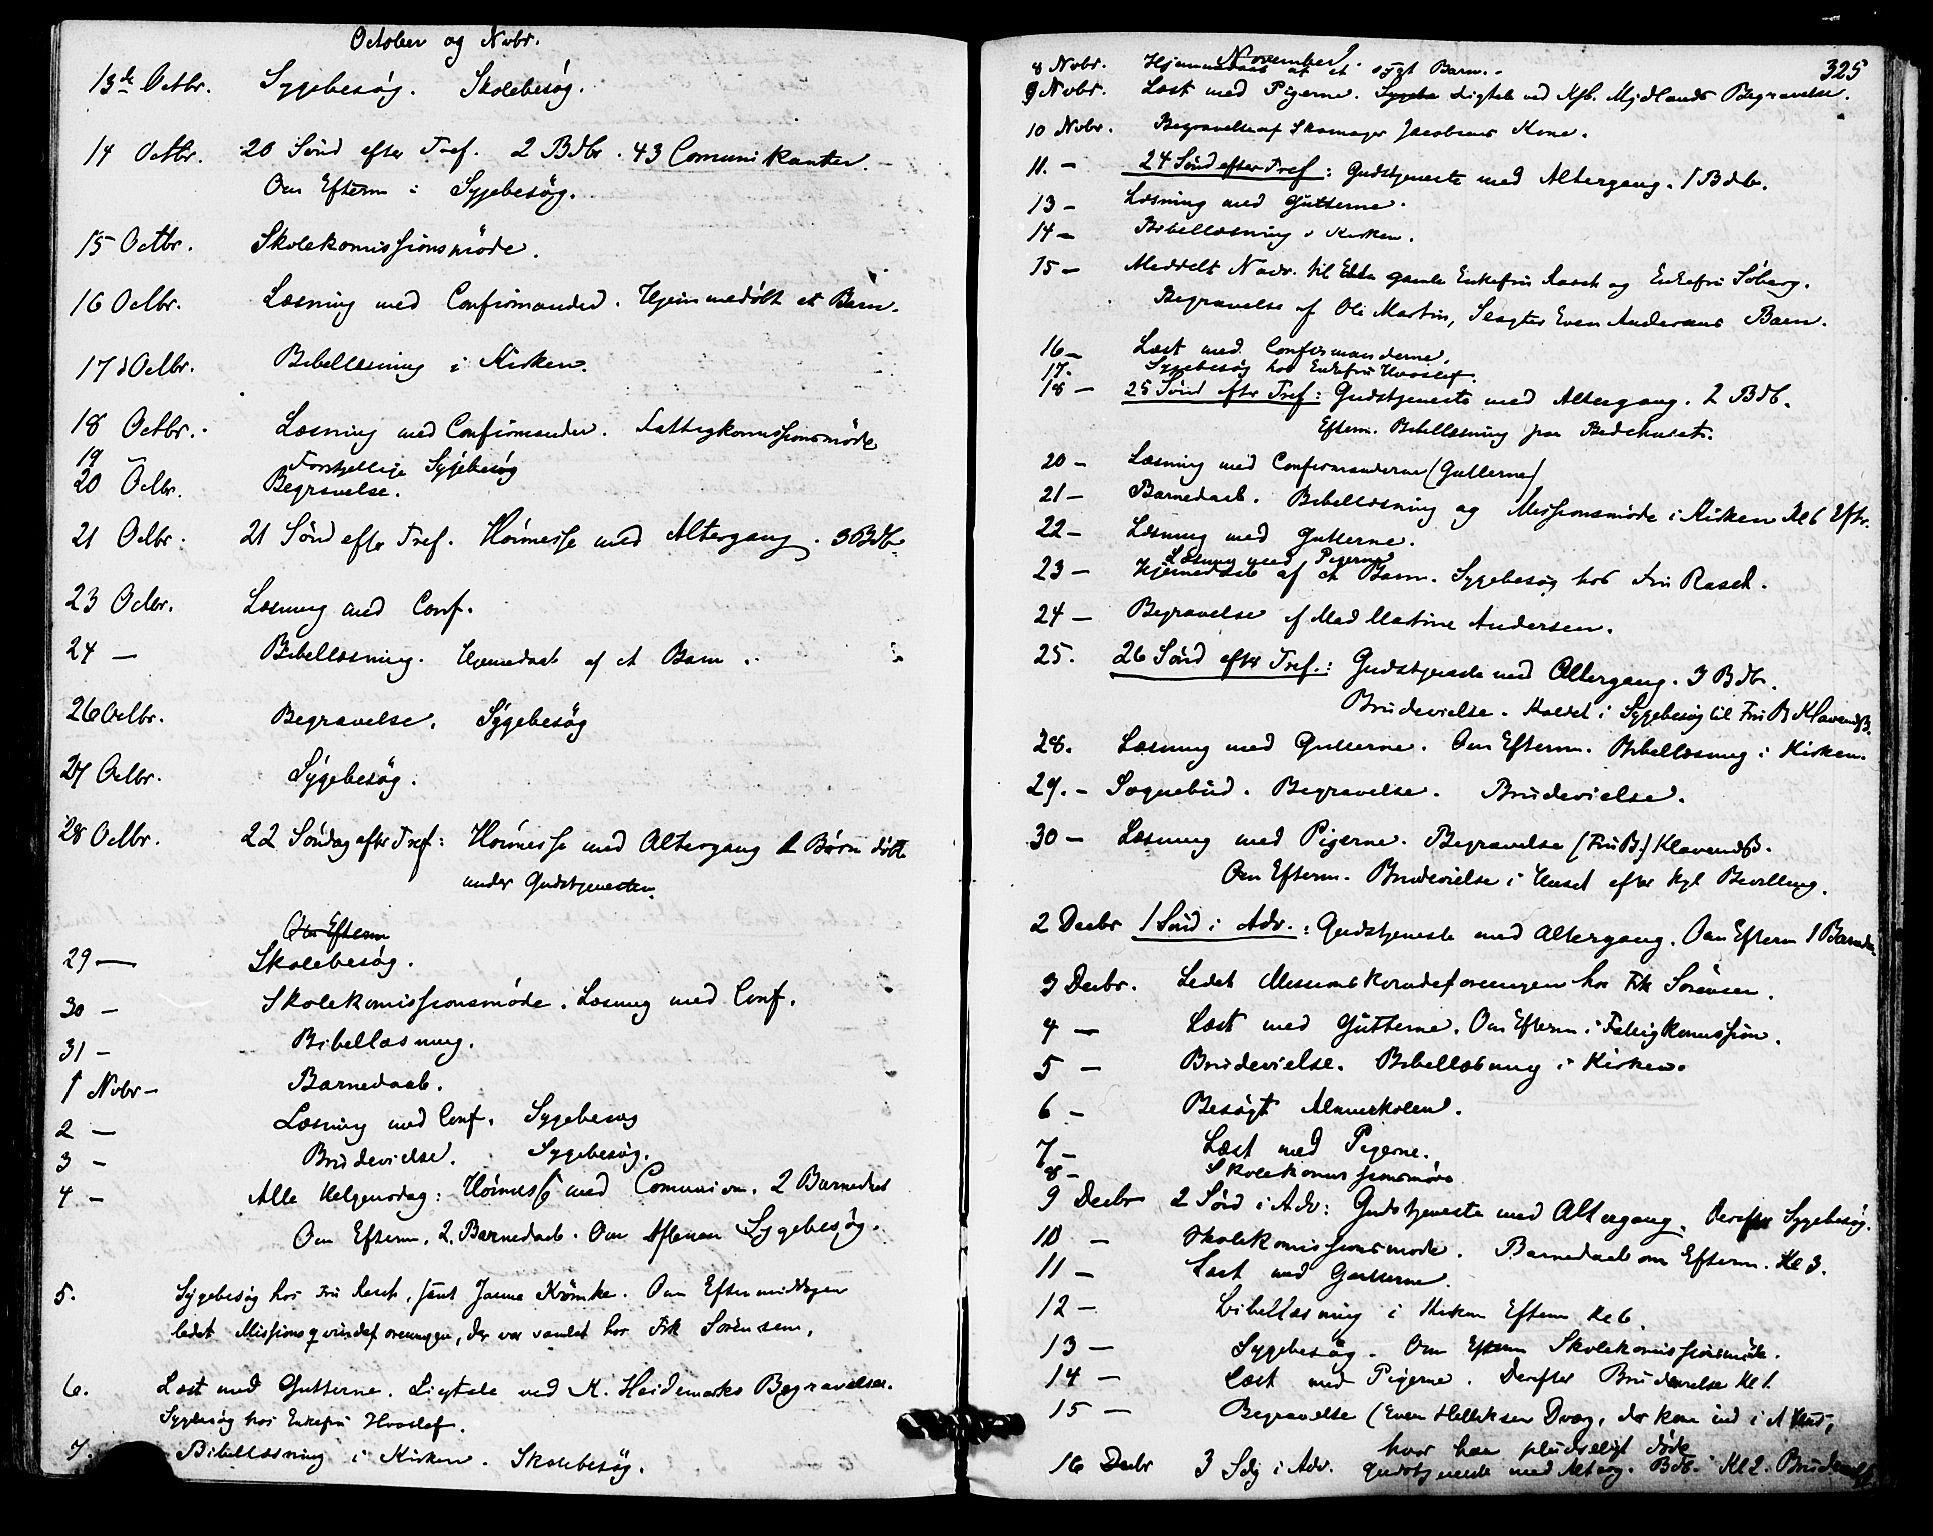 October og Nvbr.
13de Octbr. Sygebesøg. Skolebesøg.
14 Octbr. 20 Sönd efter Tref. 2 Bdbr. 43 Comunikanter.
Om Efterm : Sygebesög.
15 Octbr. Skolekomissionsmöde.
16 Octbr. Læsning med Confirmander. Hjemmedöbt et Barn.
17 d Octbr. Bibellæsning i Kirken.
18 Octbr. Læsning med Confirmander. Fattigkomissionsmöde
19 – Forskjellige Sygebesøg
20 Octbr. Begravelse.
21 Octbr. 21 Sönd efter Tref. Höimesse med Altergang. 3 Bdb.
23 Octbr. Læsning med Conf.
24 — Bibellæsning. Hjemedaab af et Barn.
26 Octbr. Begravelse. Sygebesøg
27 Octbr. Sygebesøg.
28 Octbr. 22 Söndag efter Tref: Höimesse med Altergang 2 Børn döbt
under Gudstjenesten.
Om Efterm
29 — Skolebesøg.
30 — Skolekomissionsmöde. Læsning med Conf.
31 – Bibellæsning.
1 Nvbr – Barnedaab.
2 — Læsning med Conf. Sygebesøg
3 – Brudevielse. Sygebesøg.
4 – Alle Helgensdag: Höimesse med Comunion. 2 Barnedaab
Om Efterm. 2. Barnedaab. Om Aftenen Sygebesøg.
5. Sygebesøg hos Fru Rasch, samt Janna Krömke. Om Eftermiddagen
ledet Missionsqvindeforeningen, der var samlet hos Frk Sörensen.
6. Læst med Gutterne. Ligtale ved K. Heidemarks Begravelse.
Sygebesøg hos Enkefru Hvoslef.
7. Bibellæsning i Kirken. Skolebesøg.
November. 325
8 Nvbr. Hjemmedaab af et sygt Barn.
9 Nvbr. Læst med Pigerne. Ligtale ved Kjb. Mydlands Begravelse.
10 Nvbr. Begravelse af Skomager Jacobsens Kone.
11. – 24 Sönd efter Tref: Gudstjeneste med Altergang. 1 Bdb.
13 – Læsning med Gutterne.
14 – Bibellæsning i Kirken.
15 – Meddelt Nadv. til gamle Enkefru Rasch og Enkefru Söberg.
Begravelse af Ole Martin, Slagter Even Andersens Barn.
16 – Læst med Confirmanderne.
17. Sygebesøg hos Enkefru Hvoslef.
18 – 25 Sönd eftr Tref: Gudstjeneste med Altergang. 2 Bdb.
Efterm. Bibellæsning paa Bedehuset.
20 – Læsning med Confirmanderne (Gutterne)
21 – Barnedaab. Bibellæsning og Missionsmöde i Kirken Kl 6 Eftr.
22 – Læsning med Gutterne.
Læsning med Pigerne
23 – Hjemedaab af et Barn. Sygebesøg hos Fru Rasch.
24 – Begravelse af Mad Martine Andersen.
25. 26 Sönd efter Tref.: Gudstjeneste med Altergang. 3 Bdb.
Brudevielse. Kaldet i Sygebesøg til Fru B Klavendß.
28. Læsning med Gutterne. Om Efterm. Bibellæsning i Kirken.
29. – Sognebud. Begravelse. Brudevielse.
30 – Læsning med Pigerne. Begravelse (Fru B.) Klavendß.
Om Efterm. Brudevielse i Huset efter kgl Bevilling.
2 Decbr 1 Sönd i Adv.: Gudstjeneste med Altergang. Om Efterm 1 Barnedaab
3 Decbr. Ledet Missionskvindeforeningen hos Frk Sörensen.
4 — Læst med Gutterne. Om Efterm i Fattigkomission.
5 – Brudevielse. Bibellæsning i Kirken.
6 – Besøgt Almueskolen.
7 – Læst med Pigerne.
8 – Skolekomissionsmöde
9 Decbr 2 Sönd i Adv: Gudstjeneste med Altergang. Derefter Sygebesøg.
10 – Skolekomissionsmöde. Barnedaab om Efterm. Kl 3.
11 – Læst med Gutterne.
12 – Bibellæsning i Kirken Efterm Kl 6.
13 — Sygebesøg. Om Efterm Skolekomissionsmöde.
14 – Læst med Pigerne. Derefter Brudevielse Kl 1.
15 – Begravelse (Even Helliksen Dvæg, der kom ind i
hvor han pludseligt døde
16 Decbr 3 Sdg i Adv. Gudstjeneste med Alterg. Bdb. Kl 2. Brudevielse